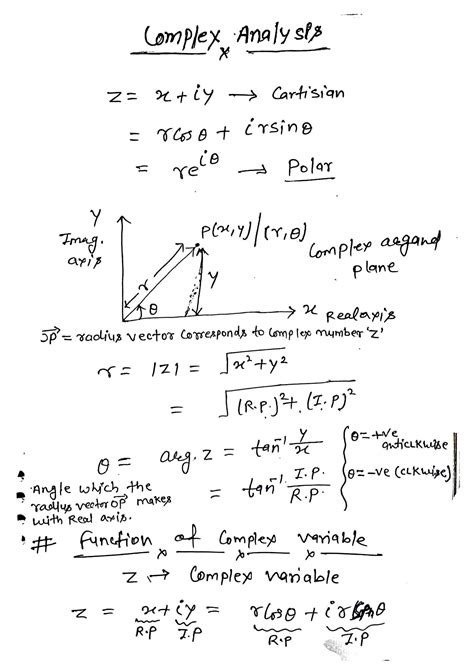 Complex Analysis
z = x + iy → Cartisian
= r cos θ + i r sin θ
= re^{iθ} → Polar
Y
Imag. axis
P(x,y)/(r,θ)
Complex argand plane
r
y
θ
x Real axis
OP = radius vector corresponds to complex number 'z'
r = |z| = √(x²+y²)
= √((R.P.)²+(I.P)²
θ = arg. z = tan⁻¹ y/x
θ=+ve anticlkwise
θ=-ve (clkwise)
= tan⁻¹ I.P./R.P.
Angle which the
radius vector OP makes
with Real axis.
# Function of Complex variable
z → Complex variable
z = x + iy = r cos θ + i r sin θ
R.P I.P R.P I.P